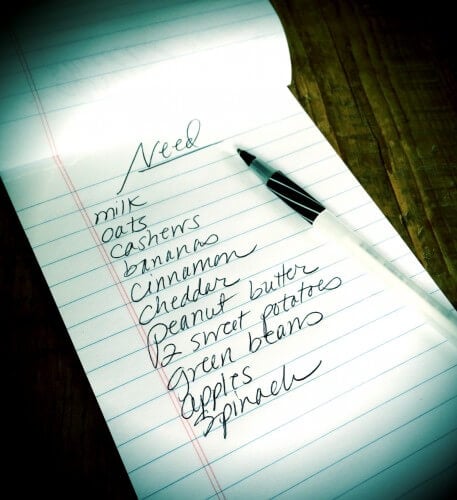 Need
milk
oats
cashews
bananas
cinnamon
cheddar
peanut butter
2 sweet potatoes
green beans
apples
spinach